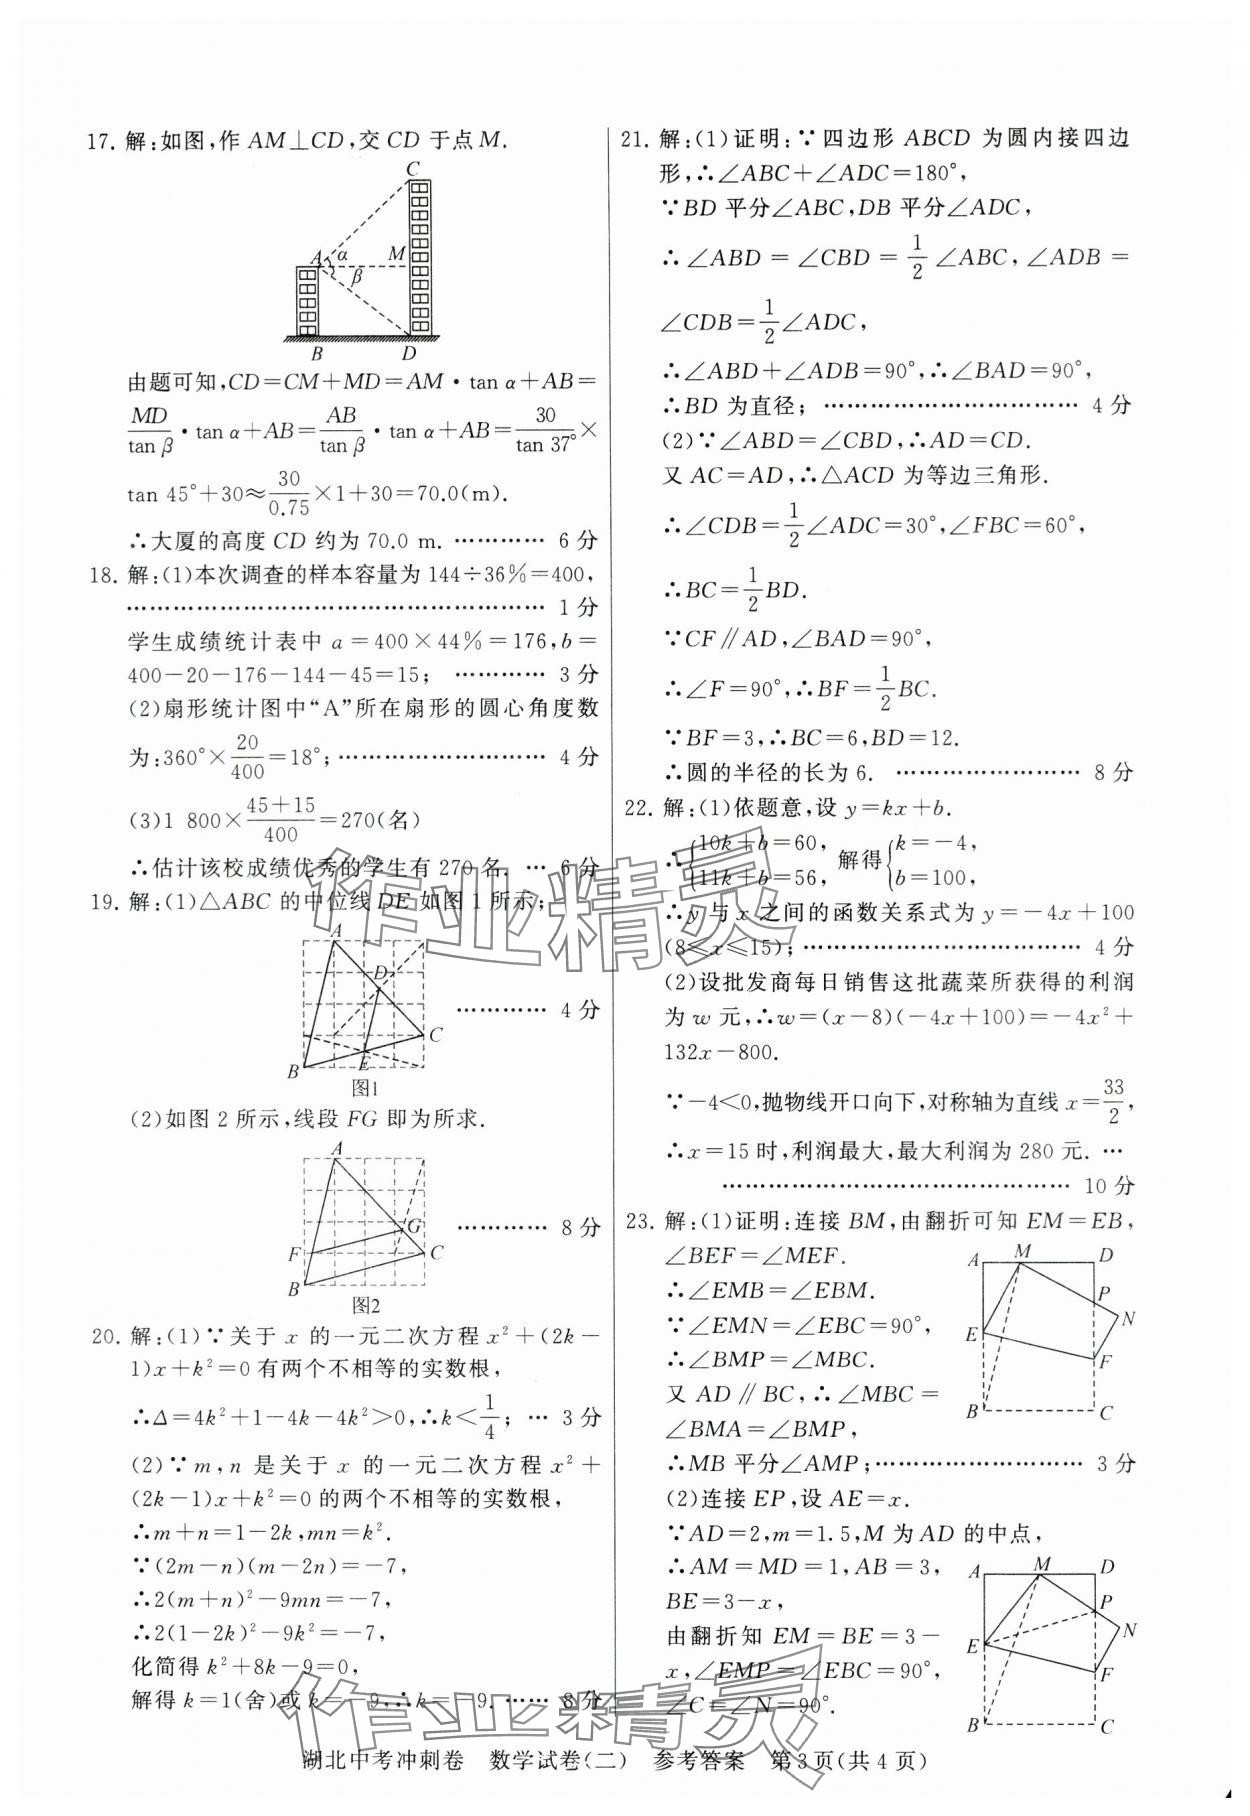 17. 解:如图,作 AM⊥CD,交 CD 于点 M.
C
A
α
M
β
B
D
由题可知,CD=CM+MD=AM·tan α+AB=
MD/tan β·tan α+AB=AB/tan β·tan α+AB=30/tan 37°×
tan 45°+30≈30/0.75×1+30=70.0(m).
∴大厦的高度 CD 约为 70.0 m. ………… 6 分
18. 解:(1)本次调查的样本容量为 144÷36%=400,
……………………………………………… 1 分
学生成绩统计表中 a=400×44%=176,b=
400-20-176-144-45=15; ………… 3 分
(2)扇形统计图中“A”所在扇形的圆心角度数
为:360°×20/400=18°;……………………… 4 分
(3)1 800×(45+15)/400=270(名)
∴估计该校成绩优秀的学生有 270 名. … 6 分
19. 解:(1)△ABC 的中位线 DE 如图 1 所示;
A
D
………… 4 分
C
E
B
图1
(2)如图 2 所示,线段 FG 即为所求.
A
G
………… 8 分
F
C
B
图2
20. 解:(1)∵关于 x 的一元二次方程 x²+(2k-
1)x+k²=0 有两个不相等的实数根,
∴Δ=4k²+1-4k-4k²>0,∴k<1/4; … 3 分
(2)∵m,n 是关于 x 的一元二次方程 x²+
(2k-1)x+k²=0 的两个不相等的实数根,
∴m+n=1-2k,mn=k².
∵(2m-n)(m-2n)=-7,
∴2(m+n)²-9mn=-7,
∴2(1-2k)²-9k²=-7,
化简得 k²+8k-9=0,
解得 k=1(舍)或 k=-9,∴k=-9. …… 8 分
21. 解:(1)证明:∵四边形 ABCD 为圆内接四边
形,∴∠ABC+∠ADC=180°,
∵BD 平分∠ABC,DB 平分∠ADC,
∴∠ABD=∠CBD=1/2∠ABC,∠ADB=
∠CDB=1/2∠ADC,
∴∠ABD+∠ADB=90°,∴∠BAD=90°,
∴BD 为直径; …………………………… 4 分
(2)∵∠ABD=∠CBD,∴AD=CD.
又 AC=AD,∴△ACD 为等边三角形.
∴∠CDB=1/2∠ADC=30°,∠FBC=60°,
∴BC=1/2BD.
∵CF∥AD,∠BAD=90°,
∴∠F=90°,∴BF=1/2BC.
∵BF=3,∴BC=6,BD=12.
∴圆的半径的长为 6. …………………… 8 分
22. 解:(1)依题意,设 y=kx+b.
∴{10k+b=60, 11k+b=56, 解得{k=-4, b=100,
∴y 与 x 之间的函数关系式为 y=-4x+100
(8≤x≤15);……………………………… 4 分
(2)设批发商每日销售这批蔬菜所获得的利润
为 w 元,∴w=(x-8)(-4x+100)=-4x²+
132x-800.
∵-4<0,抛物线开口向下,对称轴为直线 x=33/2,
∴x=15 时,利润最大,最大利润为 280 元. …
……………………………………… 10 分
23. 解:(1)证明:连接 BM,由翻折可知 EM=EB,
∠BEF=∠MEF.
∴∠EMB=∠EBM.
∵∠EMN=∠EBC=90°,
∴∠BMP=∠MBC.
又 AD∥BC,∴∠MBC=
∠BMA=∠BMP,
∴MB 平分∠AMP;……………………… 3 分
A
M
D
P
N
E
F
B
C
(2)连接 EP,设 AE=x.
∵AD=2,m=1.5,M 为 AD 的中点,
∴AM=MD=1,AB=3,
BE=3-x,
由翻折知 EM=BE=3-
x,∠EMP=∠EBC=90°,
∠C=∠N=90°.
A
M
D
P
N
E
F
B
C
作业精灵
作业精灵
湖北中考冲刺卷 数学试卷(二) 参考答案 第 3 页(共 4 页)